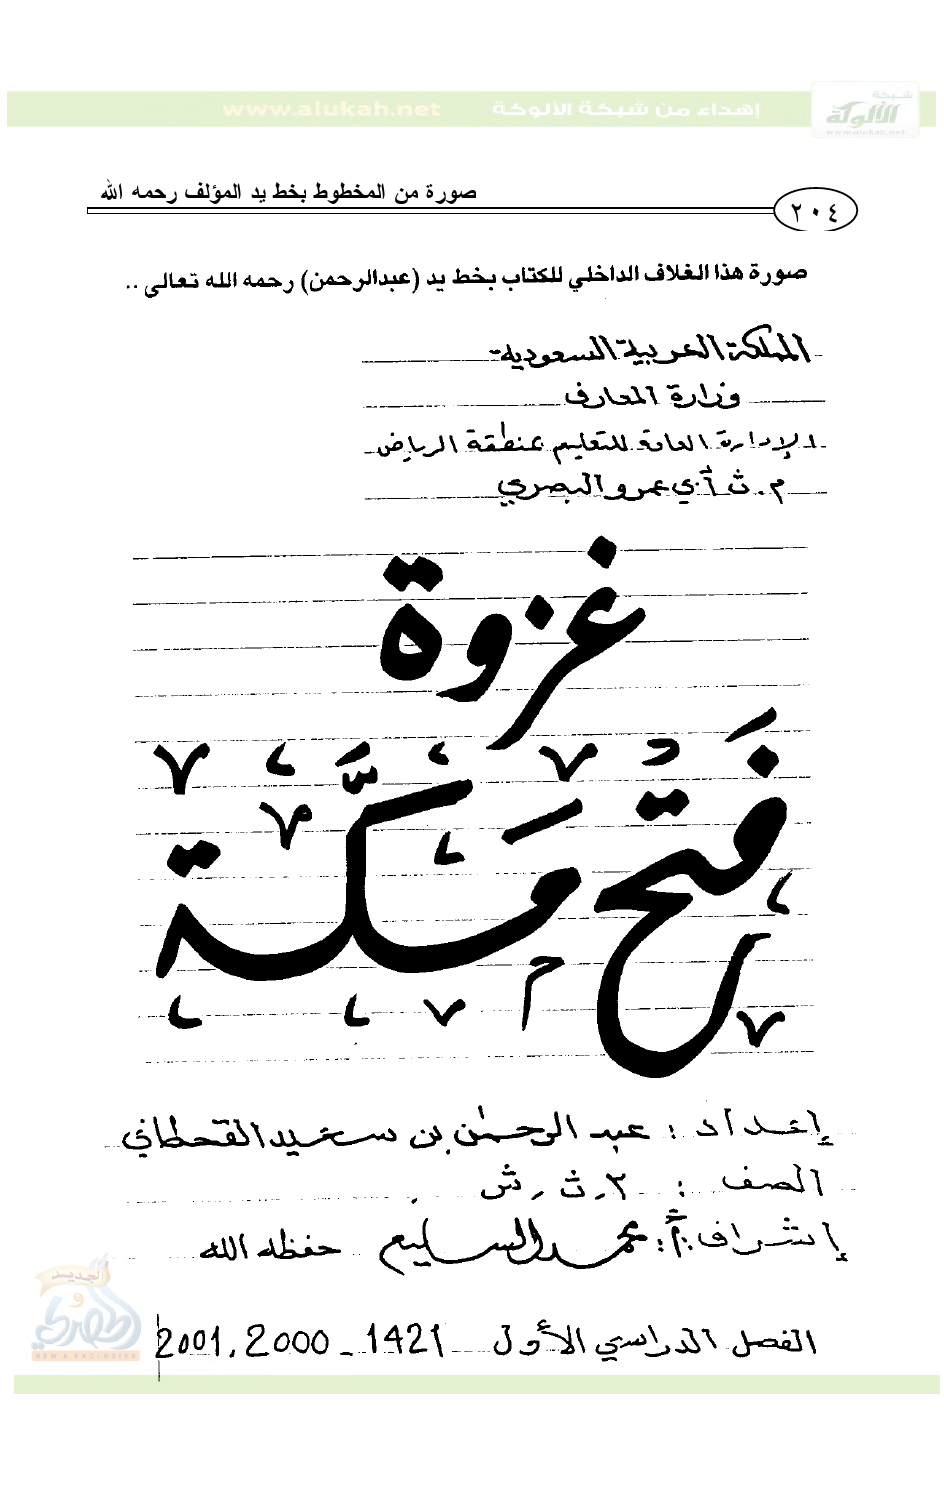 www.alukah.net إهداء من شبكة الألوكة
شبكة
الألوكة
www.alukah.net
٢٠٤
صورة من المخطوط بخط يد المؤلف رحمه الله
صورة هذا الغلاف الداخلي للكتاب بخط يد (عبدالرحمن) رحمه الله تعالى ..
المملكة العربية السعودية
وزارة المعارف
الإدارة العامة للتعليم بمنطقة الرياض
م. ث أبي عمرو البصري
غزوة
فَتح مَكَّة
إعداد : عبد الرحمٰن بن سعيد القحطاني
الصف : ٢ ث ش
إشراف أ: محمد السليم حفظه الله
الفصل الدراسي الأول 1421 - 2000 . 2001
الجديد
و
الحصري
NEW & EXCLUSIVE